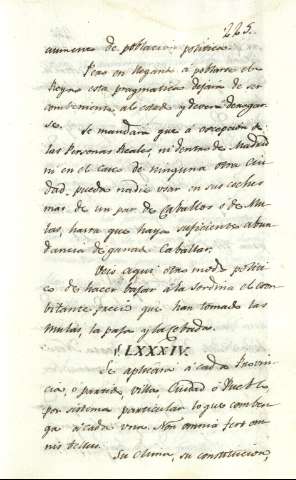 225.
aumento de poblacion politica.
Pero en llegando á poblarse el
Reyno esta pragmatica dejara de ser
combeniente al estado y devera derogar
se.
Se mandará que á excepcion de
las Personas Reales, ni dentro de Madrid
ni en el Casco de ninguna otra Ciu
dad pueda nadie usar en sus coches
mas de un par de Caballos ó de Mu
las, hasta que haya suficiente abun
dancia de ganado Caballar.
Veis aqui otro modo politi
co de hacer bajar á la sordina el exor
bitante precio que han tomado las
mulas, la paja y la Cebada.
§ LXXXIV.
Se aplicara á cada Provin
cia, o partido, villa Ciudad ó Pueblo,
por sistema particular lo que comben
ga á cada uno. Non omnia fert om
nis tellus.
Su Clima, su constitucion,